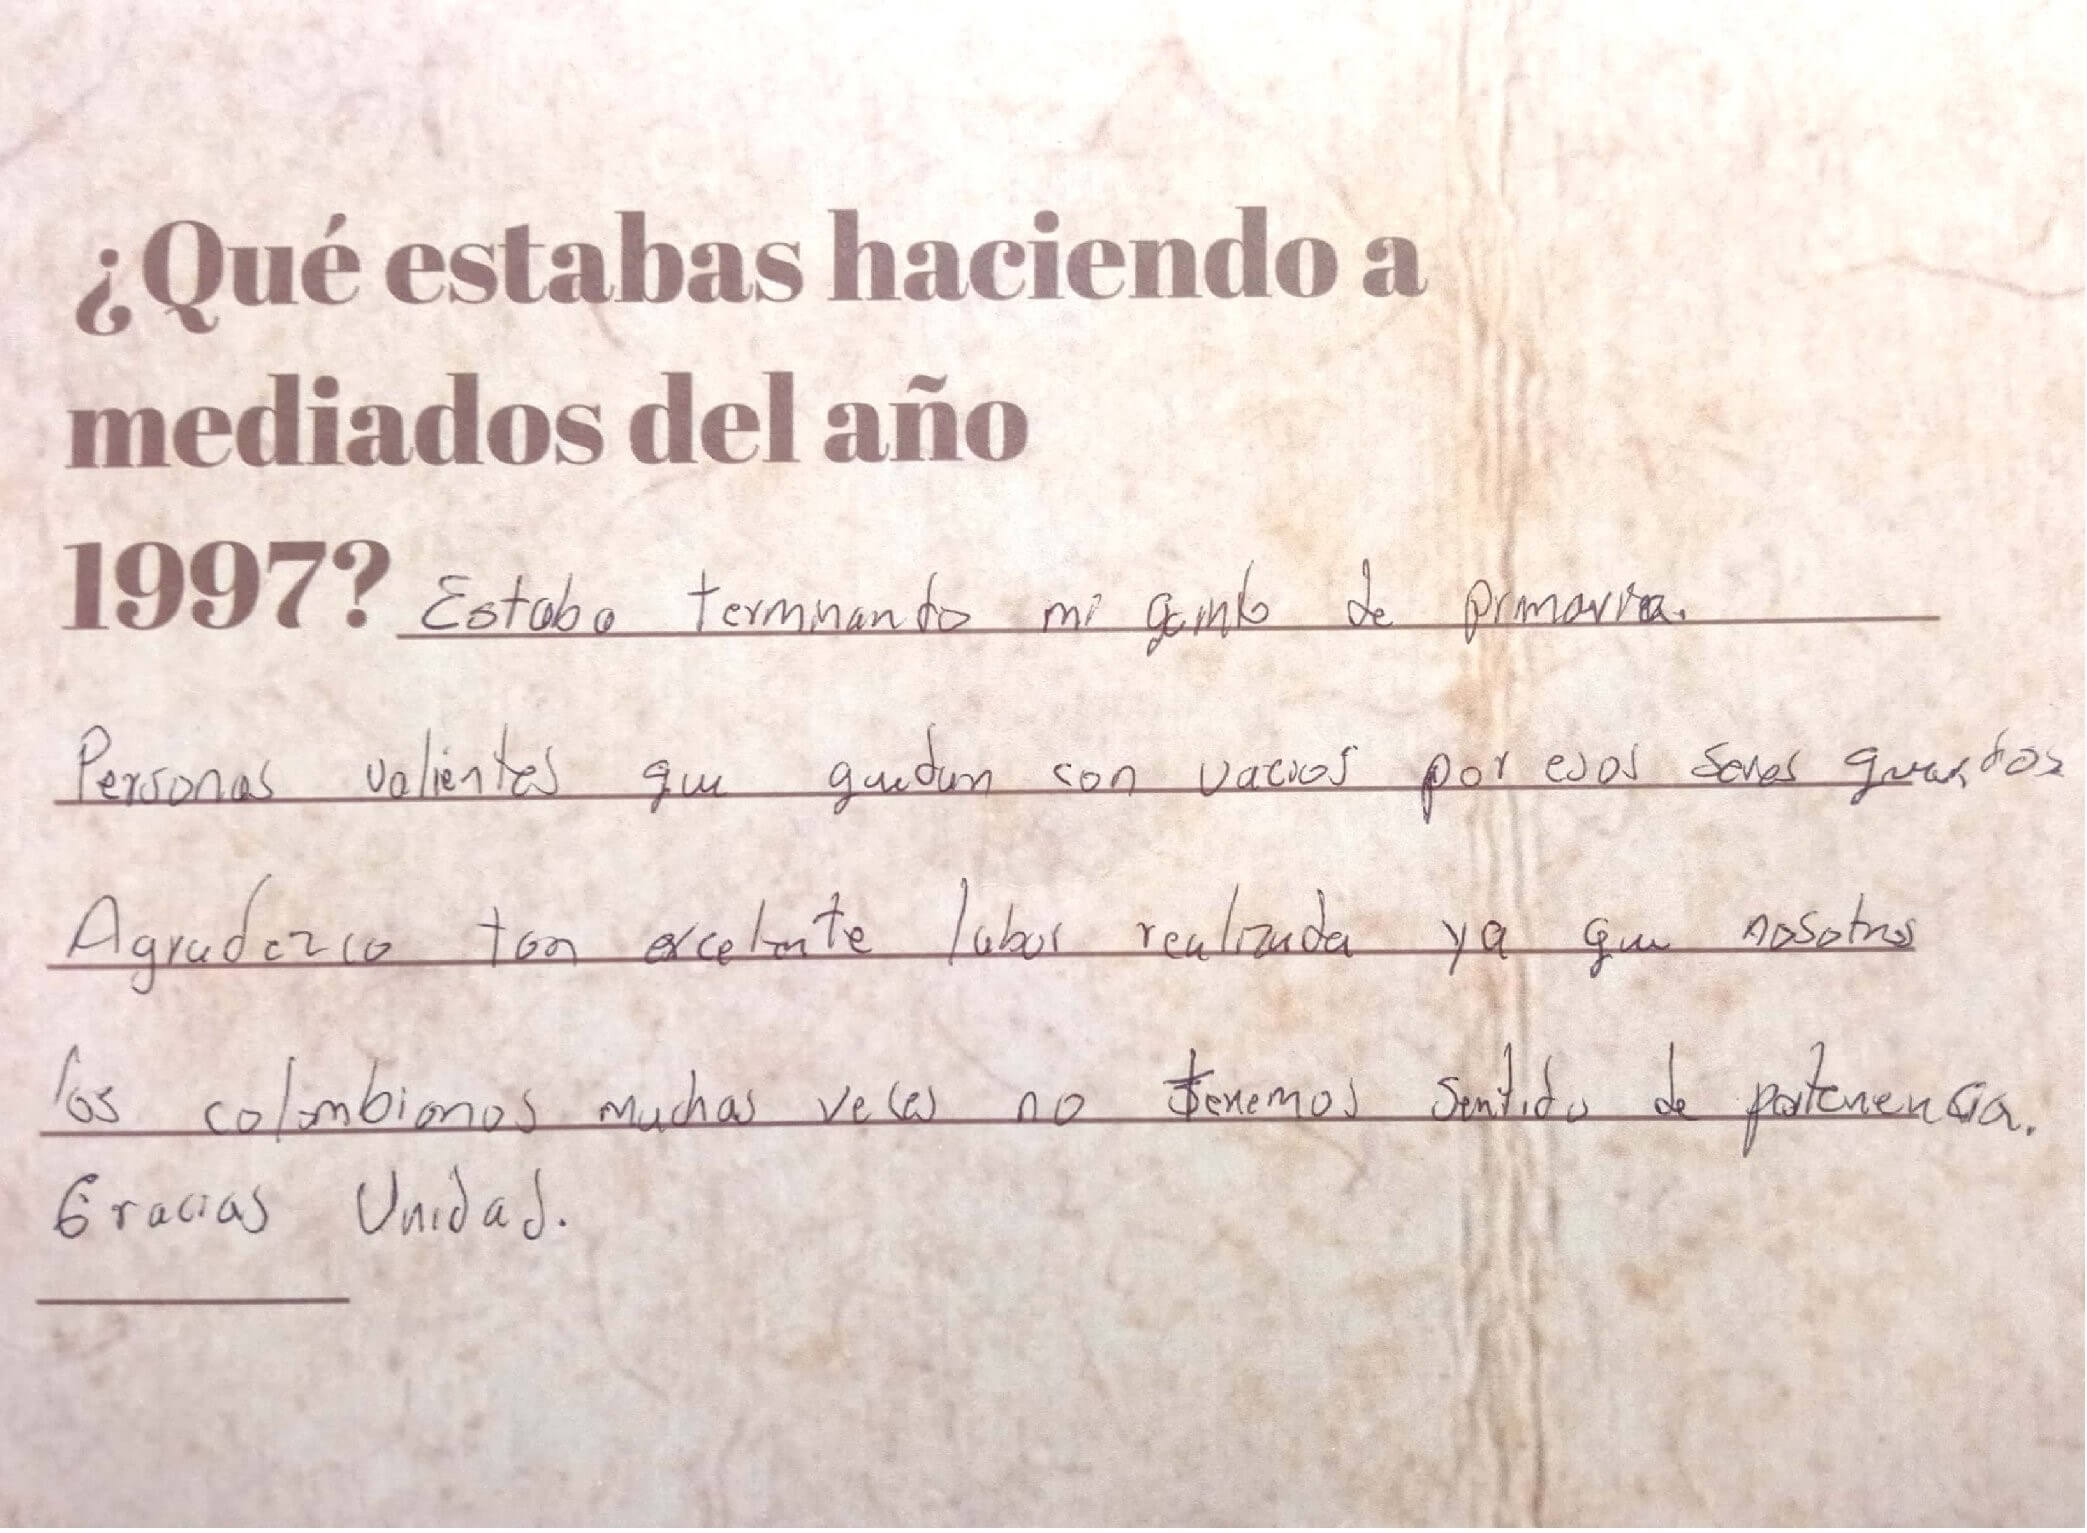 ¿Qué estabas haciendo a
mediados del año
1997? Estaba terminando mi de primaria.
Personas valientes que quedan con vacios por esos seres
Agradezco tan excelente labor realizada ya que nosotros
los colombianos muchas veces no tenemos sentido de pertenencia.
Gracias Unidad.